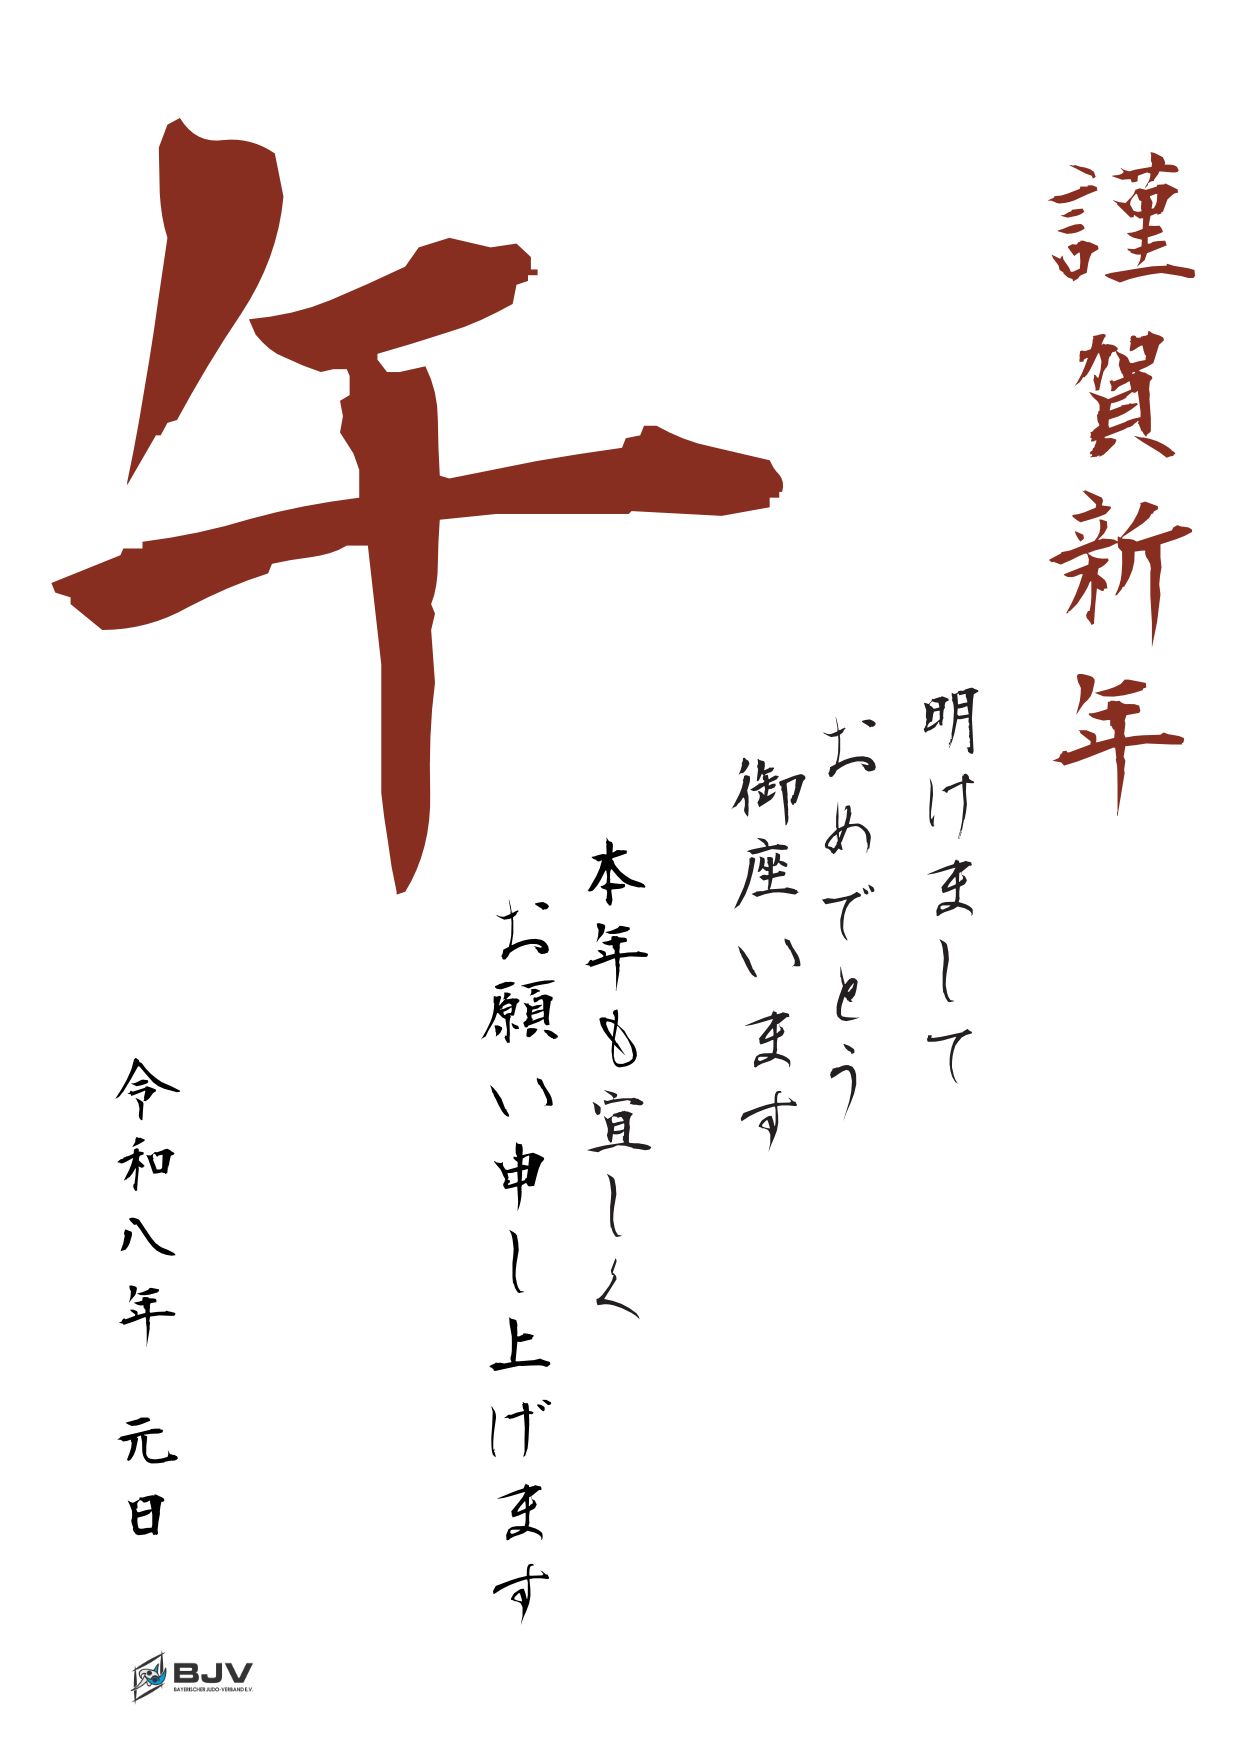 謹賀新年
明けまして
おめでとう
御座います
本年も宜しく
お願い申し上げます
午
令和八年 元日
BJV
BAYERISCHER JUDO-VERBAND E.V.